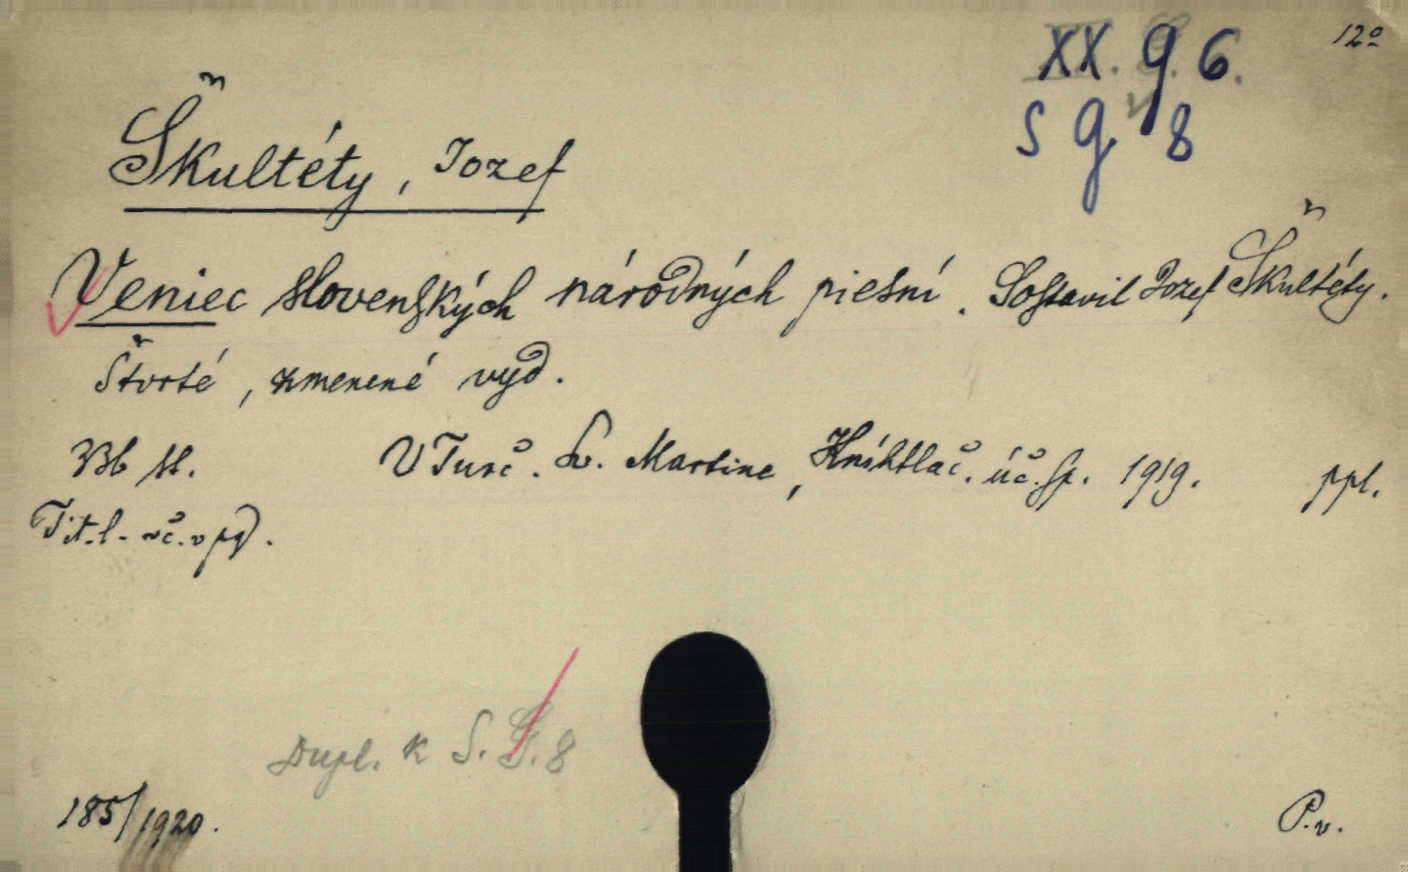 XX. g 6.
12º
S g 8
Škultéty, Jozef
Veniec slovenských národných piesní. Sostavil Jozef Škultéty.
Štvrté, zmenené vyd.
V Turč. Sv. Martine, Kníhtlač. úč. sp. 1919. ppl.
Tit. l.
Dupl. k S. G. 8
185/1920.
P. v.